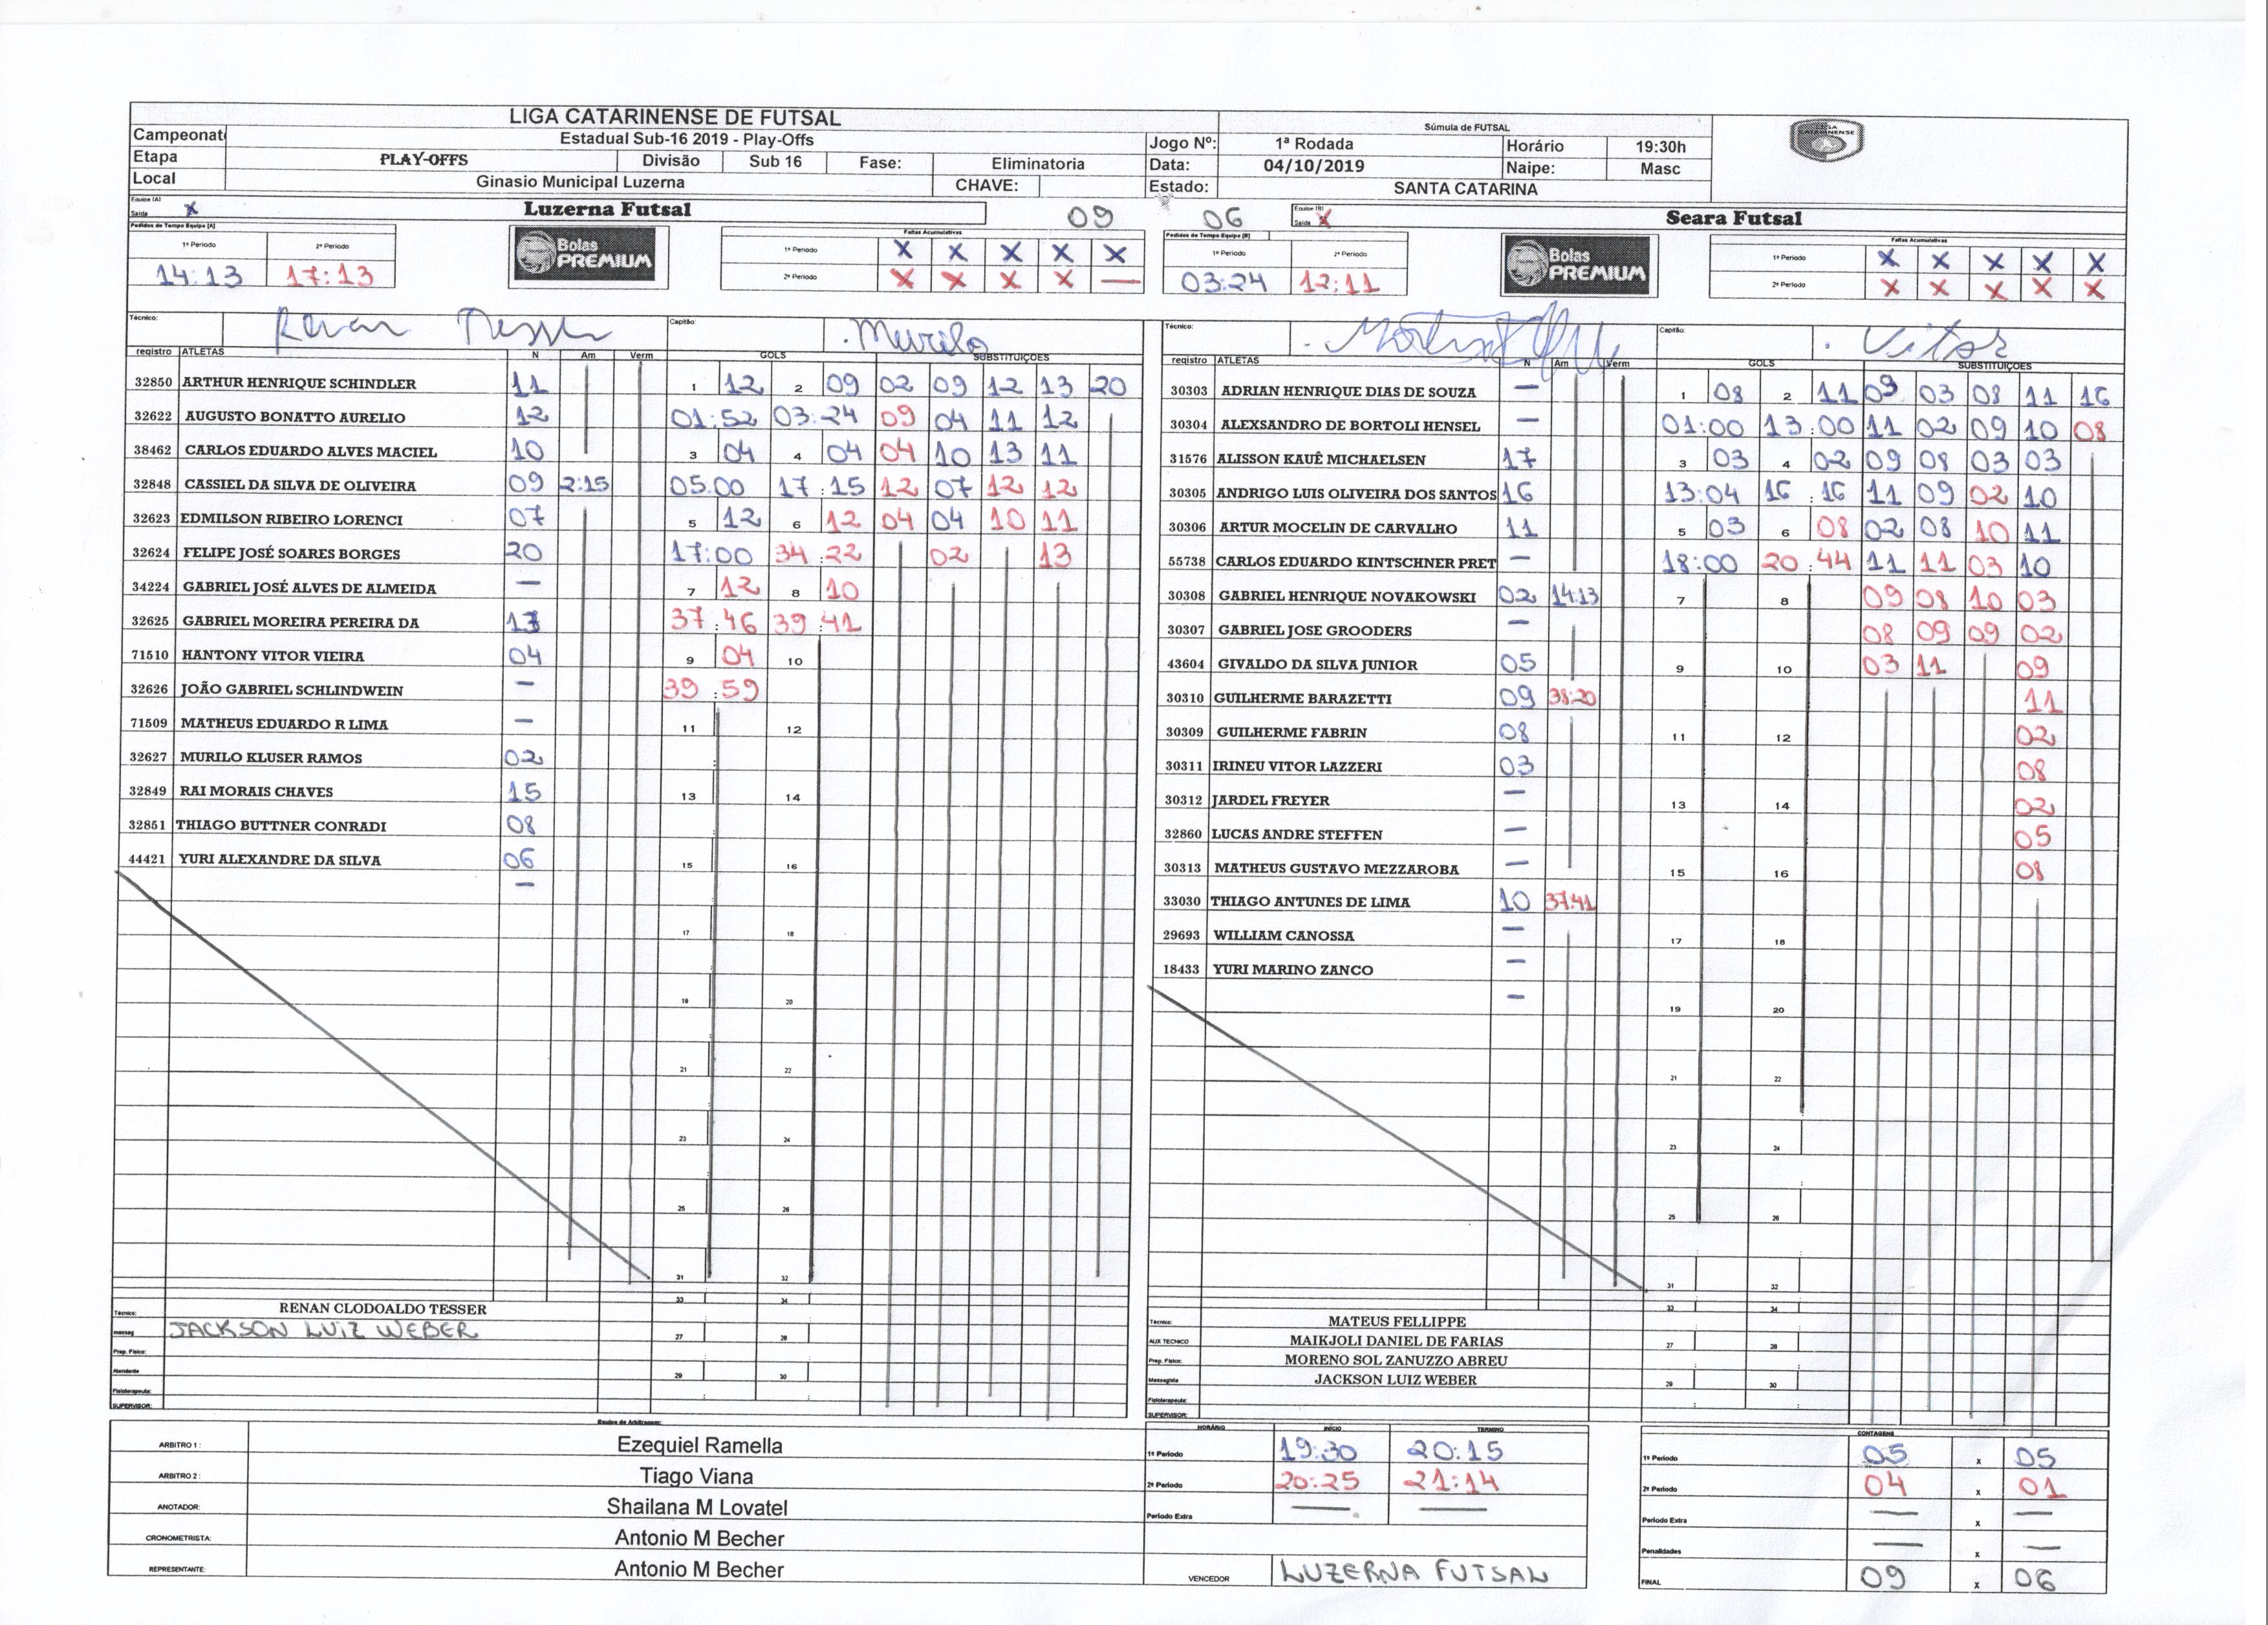 LIGA CATARINENSE DE FUTSAL
Súmula de FUTSAL
Campeonat Estadual Sub-16 2019 - Play-Offs Jogo Nº: 1ª Rodada Horário 19:30h
Etapa PLAY-OFFS Divisão Sub 16 Fase: Eliminatoria Data: 04/10/2019 Naipe: Masc
Local Ginasio Municipal Luzerna CHAVE: Estado: SANTA CATARINA
LIGA CATARINENSE
Equipe [A] Saída X Luzerna Futsal 09
06 Equipe [B] Saída X Seara Futsal
Pedidos de Tempo Equipe [A]
1º Periodo 2º Periodo
14:13 17:13
Bolas PREMIUM
Faltas Acumulativas
1º Periodo X X X X X
2º Periodo X X X X —
Pedidos de Tempo Equipe [B]
1º Periodo 2º Periodo
03:24 12:11
Bolas PREMIUM
Faltas Acumulativas
1º Periodo X X X X X
2º Periodo X X X X X
Técnico: Renan Tesser Capitão: Murilo
registro ATLETAS N Am Verm GOLS SUBSTITUIÇÕES
32850 ARTHUR HENRIQUE SCHINDLER 11 1 12 2 09 02 09 12 13 20
32622 AUGUSTO BONATTO AURELIO 12 01:52 03:24 09 04 11 12
38462 CARLOS EDUARDO ALVES MACIEL 10 3 04 4 04 04 10 13 11
32848 CASSIEL DA SILVA DE OLIVEIRA 09 2:15 05:00 17:15 12 07 12 12
32623 EDMILSON RIBEIRO LORENCI 07 5 12 6 12 04 04 10 11
32624 FELIPE JOSÉ SOARES BORGES 20 17:00 34:22 02 13
34224 GABRIEL JOSÉ ALVES DE ALMEIDA — 7 12 8 10
32625 GABRIEL MOREIRA PEREIRA DA 13 37:46 39:41
71510 HANTONY VITOR VIEIRA 04 9 04 10
32626 JOÃO GABRIEL SCHLINDWEIN — 39:59
71509 MATHEUS EDUARDO R LIMA — 11 12
32627 MURILO KLUSER RAMOS 02
32849 RAI MORAIS CHAVES 15 13 14
32851 THIAGO BUTTNER CONRADI 08
44421 YURI ALEXANDRE DA SILVA 06 15 16
—
17 18
19 20
21 22
23 24
25 26
31 32
33 34
Técnico: RENAN CLODOALDO TESSER
massag JACKSON LUIZ WEBER 27 28
Prep. Físico:
Atendente 29 30
Fisioterapeuta:
SUPERVISOR:
Técnico: Capitão: Vitor
registro ATLETAS N Am Verm GOLS SUBSTITUIÇÕES
30303 ADRIAN HENRIQUE DIAS DE SOUZA — 1 08 2 11 09 03 08 11 16
30304 ALEXSANDRO DE BORTOLI HENSEL — 01:00 13:00 11 02 09 10 08
31576 ALISSON KAUÊ MICHAELSEN 17 3 03 4 02 09 08 03 03
30305 ANDRIGO LUIS OLIVEIRA DOS SANTOS 16 13:04 16:16 11 09 02 10
30306 ARTUR MOCELIN DE CARVALHO 11 5 03 6 08 02 08 10 11
55738 CARLOS EDUARDO KINTSCHNER PRET — 18:00 20:44 11 11 03 10
30308 GABRIEL HENRIQUE NOVAKOWSKI 02 14:13 7 8 09 08 10 03
30307 GABRIEL JOSE GROODERS — 08 09 09 02
43604 GIVALDO DA SILVA JUNIOR 05 9 10 03 11 09
30310 GUILHERME BARAZETTI 09 38:20 11
30309 GUILHERME FABRIN 08 11 12 02
30311 IRINEU VITOR LAZZERI 03 08
30312 JARDEL FREYER — 13 14 02
32860 LUCAS ANDRE STEFFEN — 05
30313 MATHEUS GUSTAVO MEZZAROBA — 15 16 08
33030 THIAGO ANTUNES DE LIMA 10 37:41
29693 WILLIAM CANOSSA — 17 18
18433 YURI MARINO ZANCO —
— 19 20
21 22
23 24
25 26
31 32
33 34
Técnico: MATEUS FELLIPPE
AUX TECNICO MAIKJOLI DANIEL DE FARIAS 27 28
Prep. Físico: MORENO SOL ZANUZZO ABREU
Massagista JACKSON LUIZ WEBER 29 30
Fisioterapeuta:
SUPERVISOR:
Equipe de Arbitragem:
ARBITRO 1 : Ezequiel Ramella
ARBITRO 2 : Tiago Viana
ANOTADOR: Shailana M Lovatel
CRONOMETRISTA: Antonio M Becher
REPRESENTANTE: Antonio M Becher
HORÁRIO INÍCIO TERMINO
1º Periodo 19:30 20:15
2º Periodo 20:25 21:14
Período Extra — —
VENCEDOR LUZERNA FUTSAL
CONTAGENS
1º Periodo 05 x 05
2º Periodo 04 x 01
Período Extra — x —
Penalidades — x —
FINAL 09 x 06